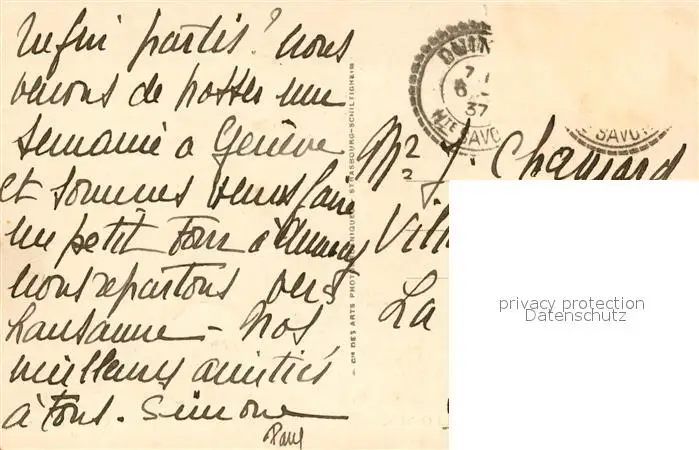 Enfin partis ! nous
venons de passer une
semaine à Genève
et sommes venus faire
un petit tour à Annecy
nous repartons vers
Lausanne - Nos
meilleures amitiés
à tous. Simone
Paul
Cie DES ARTS PHOTOMÉCANIQUES STRASBOURG-SCHILTIGHEIM
DUIN
7
6
37
HTE SAVO
SAVOI
Mr J. Chanjard
Vill
La
privacy protection
Datenschutz